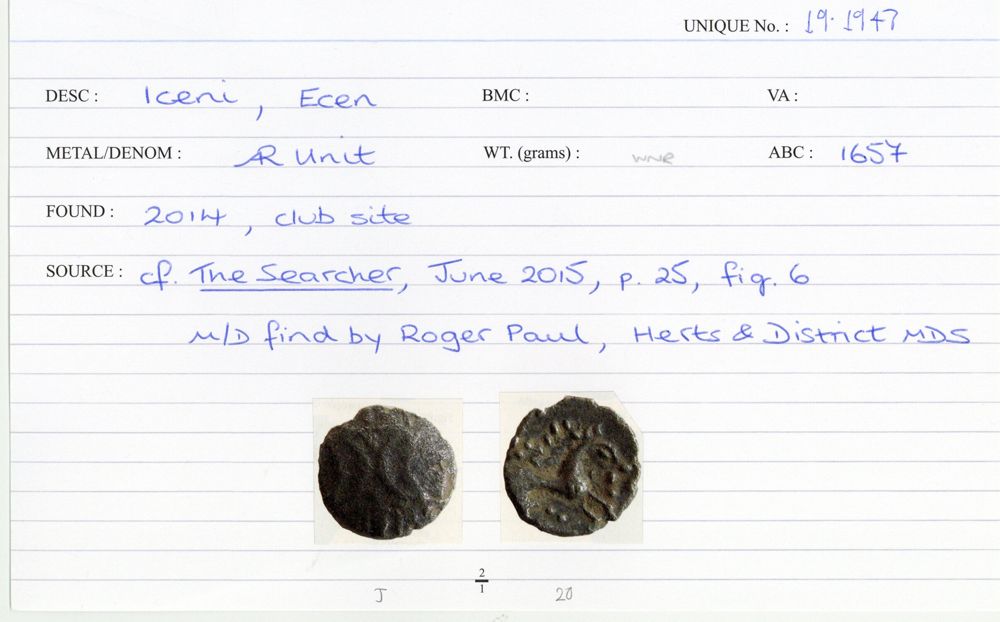 UNIQUE No. : 19.1947
DESC : Iceni, Ecen BMC : VA :
METAL/DENOM : AR Unit WT. (grams) : WNR ABC : 1657
FOUND : 2014, club site
SOURCE : cf. The Searcher, June 2015, p. 25, fig. 6
M/D find by Roger Paul, Herts & District MDS
2
1
J 20